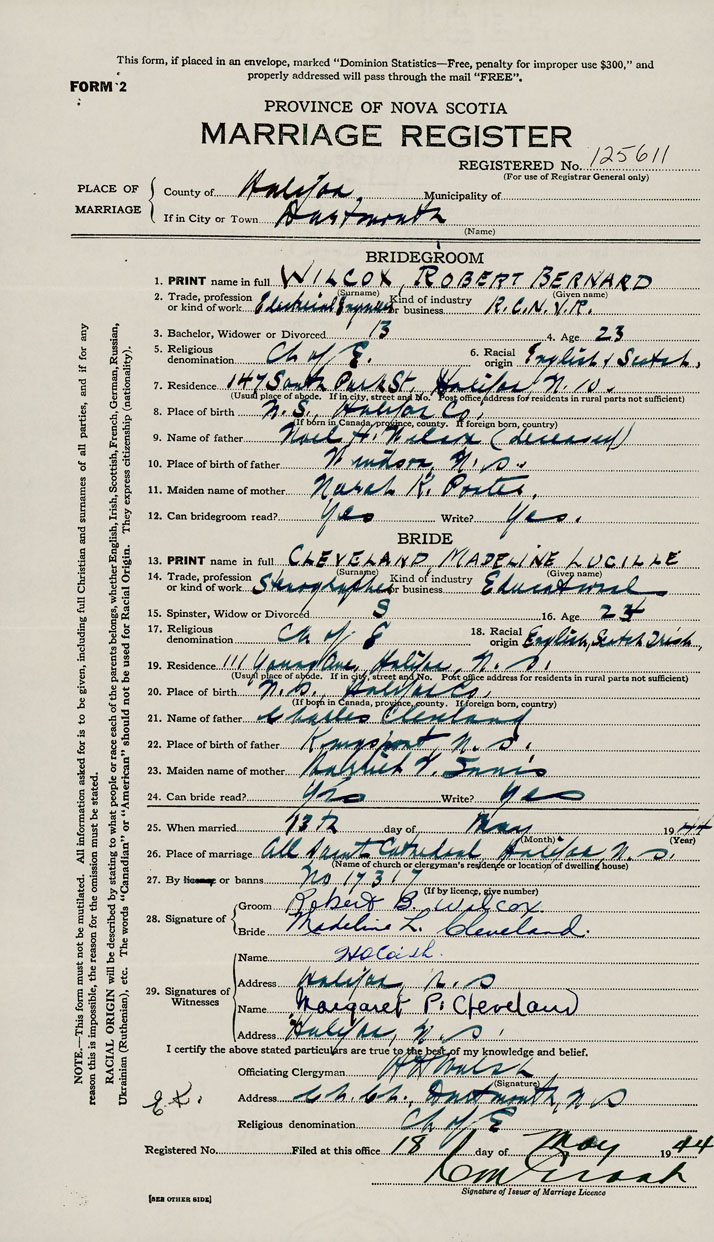 This form, if placed in an envelope, marked "Dominion Statistics—Free, penalty for improper use $300," and
properly addressed will pass through the mail "FREE".
FORM 2
PROVINCE OF NOVA SCOTIA
MARRIAGE REGISTER
REGISTERED No. 125611
(For use of Registrar General only)
PLACE OF MARRIAGE
County of Halifax, Municipality of
If in City or Town Dartmouth
(Name)
BRIDEGROOM
1. PRINT name in full WILCOX, ROBERT BERNARD
(Surname) (Given name)
2. Trade, profession or kind of work Electrical Engineer Kind of industry or business R.C.N.V.R.
3. Bachelor, Widower or Divorced B 4. Age 23
5. Religious denomination Ch of E. 6. Racial origin English & Scotch,
7. Residence 147 South Park St. Halifax, N. S.
(Usual place of abode. If in city, street and No. Post office address for residents in rural parts not sufficient)
8. Place of birth N.S., Halifax Co,
(If born in Canada, province, county. If foreign born, country)
9. Name of father Noel H. Wilcox (deceased)
10. Place of birth of father Windsor, N.S.
11. Maiden name of mother K. Porter,
12. Can bridegroom read? Yes Write? Yes.
BRIDE
13. PRINT name in full CLEVELAND MADELINE LUCILLE
(Surname) (Given name)
14. Trade, profession or kind of work Stenographer Kind of industry or business Educational
15. Spinster, Widow or Divorced S 16. Age 24
17. Religious denomination Ch of E 18. Racial origin English, Scotch, Irish,
19. Residence 111 Young Ave, Halifax, N. S.
(Usual place of abode. If in city, street and No. Post office address for residents in rural parts not sufficient)
20. Place of birth N. S., Halifax Co,
(If born in Canada, province, county. If foreign born, country)
21. Name of father Charles Cleveland
22. Place of birth of father Kingsport N. S.
23. Maiden name of mother Innis
24. Can bride read? Yes Write? Yes
25. When married 13th day of May 1944
(Month) (Year)
26. Place of marriage All Saint Cathedral Halifax, N. S.
(Name of church or clergyman's residence or location of dwelling house)
27. By license or banns No 17317
(If by licence, give number)
28. Signature of
Groom Robert B. Wilcox
Bride Madeline L. Cleveland.
29. Signatures of Witnesses
Name
Address Halifax, N. S
Name Margaret P. Cleveland
Address Halifax, N. S.
I certify the above stated particulars are true to the best of my knowledge and belief.
Officiating Clergyman Walsh
(Signature)
Address Ch. Ch., Dartmouth, N S
Religious denomination Ch of E
Registered No. Filed at this office 18 day of May 1944
Signature of Issuer of Marriage Licence
[SEE OTHER SIDE]
NOTE.—This form must not be mutilated. All information asked for is to be given, including full Christian and surnames of all parties, and if for any
reason this is impossible, the reason for the omission must be stated.
RACIAL ORIGIN will be described by stating to what people or race each of the parents belongs, whether English, Irish, Scottish, French, German, Russian,
Ukrainian (Ruthenian), etc. The words "Canadian" or "American" should not be used for Racial Origin. They express citizenship (nationality).